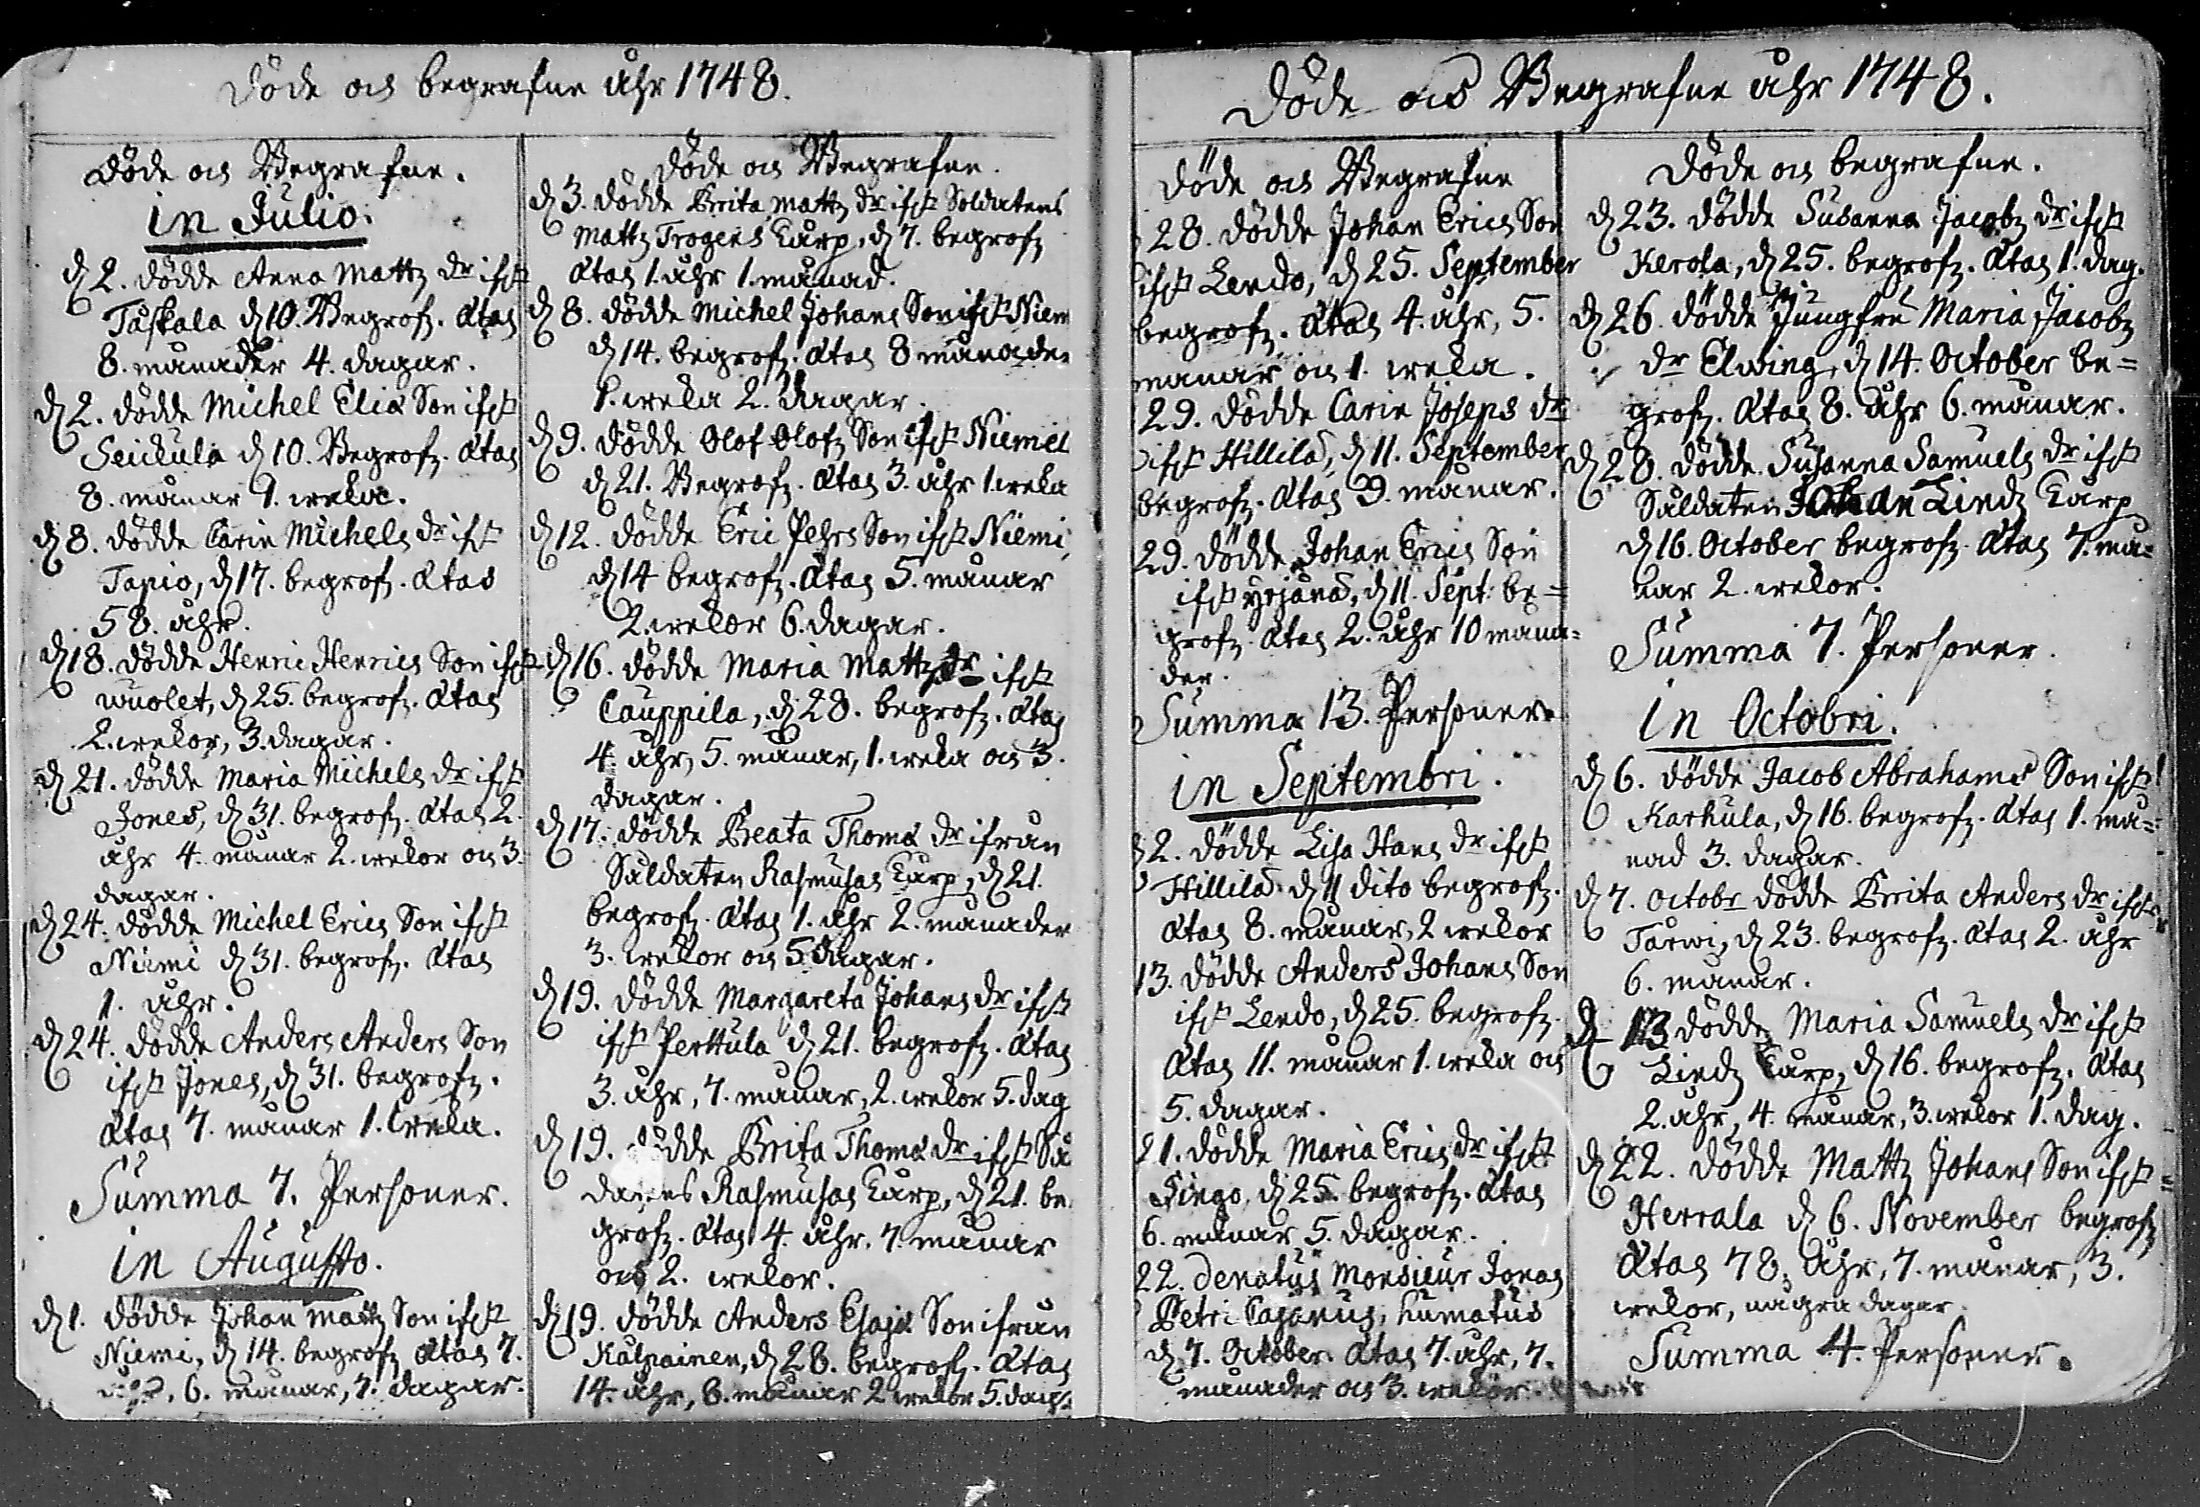 Döde och begrafne åhr 1748.
Döde och Begrafne.
in Julio.
d. 2. dödde Anna Mattz dr ifrå
Taskala d. 10. Begrofz. Ætas
8. månader 4. dagar.
d. 2. dödde Michel Eliæ Son ifrå
Seickula d. 10. Begrofz. Ætas
8. månar 1. weka.
d. 8. dödde Carin Michels dr ifrå
Tapio, d. 17. begrofz. Ætas
58. åhr.
d. 18. dödde Henric Henrics Son ifrå
wuolet, d. 25. begrofz. Ætas
2. wekor, 3. dagar.
d. 21. dödde Maria Michels dr ifrå
Jones, d. 31. begrofz. Ætas 2.
åhr 4. månar 2. wekor och 3.
dagar.
d. 24. dödde Michel Erics Son ifrå
Niemi d. 31. begrofz. Ætas
1. åhr.
d. 24. dödde Anders Anders Son
ifrå Jones, d. 31. begrofz.
Ætas 7. månar 1. weka.
Summa 7. Personer.
in Augusto.
d. 1. dödde Johan Mattz Son ifrå
Niemi, d. 14. begrofz Ætas 7.
åhr, 6. månar, 7. dagar.
Döde och Begrafne.
d. 3. dödde Brita Mattz dr ifrå Soldatens
Mattz Trogens Tårp, d. 7. begrofz
Ætas 1. åhr 1. månad.
d. 8. dödde Michel Johans Son ifrå Niem
d. 14. begrofz. Ætas 8 månader
1. weka 2. dagar.
d. 9. dödde Olof Olofz Son ifrå Niemel
d. 21. Begrofz. Ætas 3. åhr 1. weka
d. 12. dödde Eric Pehrs Son ifrå Niemi,
d. 14 begrofz. Ætas 5. månar
2. wekor 6. dagar.
d. 16. dödde Maria Mattz dr ifrå
Cauppila, d. 28. begrofz. Ætas
4. åhr, 5. månar, 1. weka och 3.
dagar.
d. 17. dödde Beata Thomæ dr ifrån
Saldaten Rasmusas Tårp, d. 21.
begrofz. Ætas 1. åhr 2. månader
3. wekor och 5 dagar.
d. 19. dödde Margareta Johans dr ifrå
ifrå Perttula d. 21. begrofz. Ætas
3. åhr, 7. månar, 2. wekor 5. dag
d. 19. dödde Brita Thomæ dr ifrå Sa
Rasmusas Tårp, d. 21. be
grofz. Ætas 4. åhr, 7. månar
och 2. wekor.
d. 19. dödde Anders Esajæ Son ifrån
Kalpainen, d. 28. begrofz. Ætas
14. åhr, 8. månar 2 wekor 5. dag
Döde och Begrafne åhr 1748.
Döde och Begrafne
28. dödde Johan Erics Son
ifrå Lendo, d. 25. September
begrofz. Ætas 4. åhr, 5.
månar och 1. weka.
29. dödde Carin Joseps dr
ifrå Hillilä, d. 11. September
begrofz. Ætas 9. månar.
29. dödde Johan Erics Son
ifrå yrjänä, d. 11. Sept. be=
grofz. Ætas 2. åhr 10 måna=
der.
Summa 13. Personer
in Septembri.
2. dödde Lisa Hans dr ifrå
Hillilä d. 11 dito begrofz.
Ætas 8. månar, 2 wekor
13. dödde Anders Johans Son
ifrå Lendo, d. 25. begrofz.
Ætas 11. månar 1. weka och
5. dagar.
21. dödde Maria Erics dr ifrå
d. 25. begrofz. Ætas
6. månar 5. dagar.
22. denatus Monsieur Jonas
Petri Cajanus, humatus
d. 7. October. Ætas 7. åhr, 7.
månader och 3. wekor.
Döde och begrafne.
d. 23. dödde Susanna Jacobz dr ifrå
Kerola, d. 25. begrofz. Ætas 1. dag.
d. 26. dödde Jungfru Maria Jacobz
dr Elwing, d. 14. October be=
grofz. Ætas 8. åhr 6. månar.
d. 28. dödde Susanna Samuels dr ifrå
Saldaten Johan Lindz Tårp
d. 16. October begrofz. Ætas 7. må=
nar 2. wekor.
Summa 7. Personer.
in Octobri.
d. 6. dödde Jacob Abrahams Son ifrå
Karhula, d. 16. begrofz. Ætas 1. må=
nad 3. dagar.
d. 7. Octobr dödde Brita Anders dr ifrå
Tarwi, d. 23. begrofz. Ætas 2. åhr
6. månar.
d. 13 dödde Maria Samuels dr ifrå
Lindz Tårp, d. 16. begrofz. Ætas
2. åhr, 4. månar, 3. wekor 1. dag.
d. 22. dödde Mattz Johans Son ifrå
Herrala d. 6. November begrofz
Ætas 78. åhr, 7. månar, 3.
wekor, några dagar.
Summa 4. Personer.